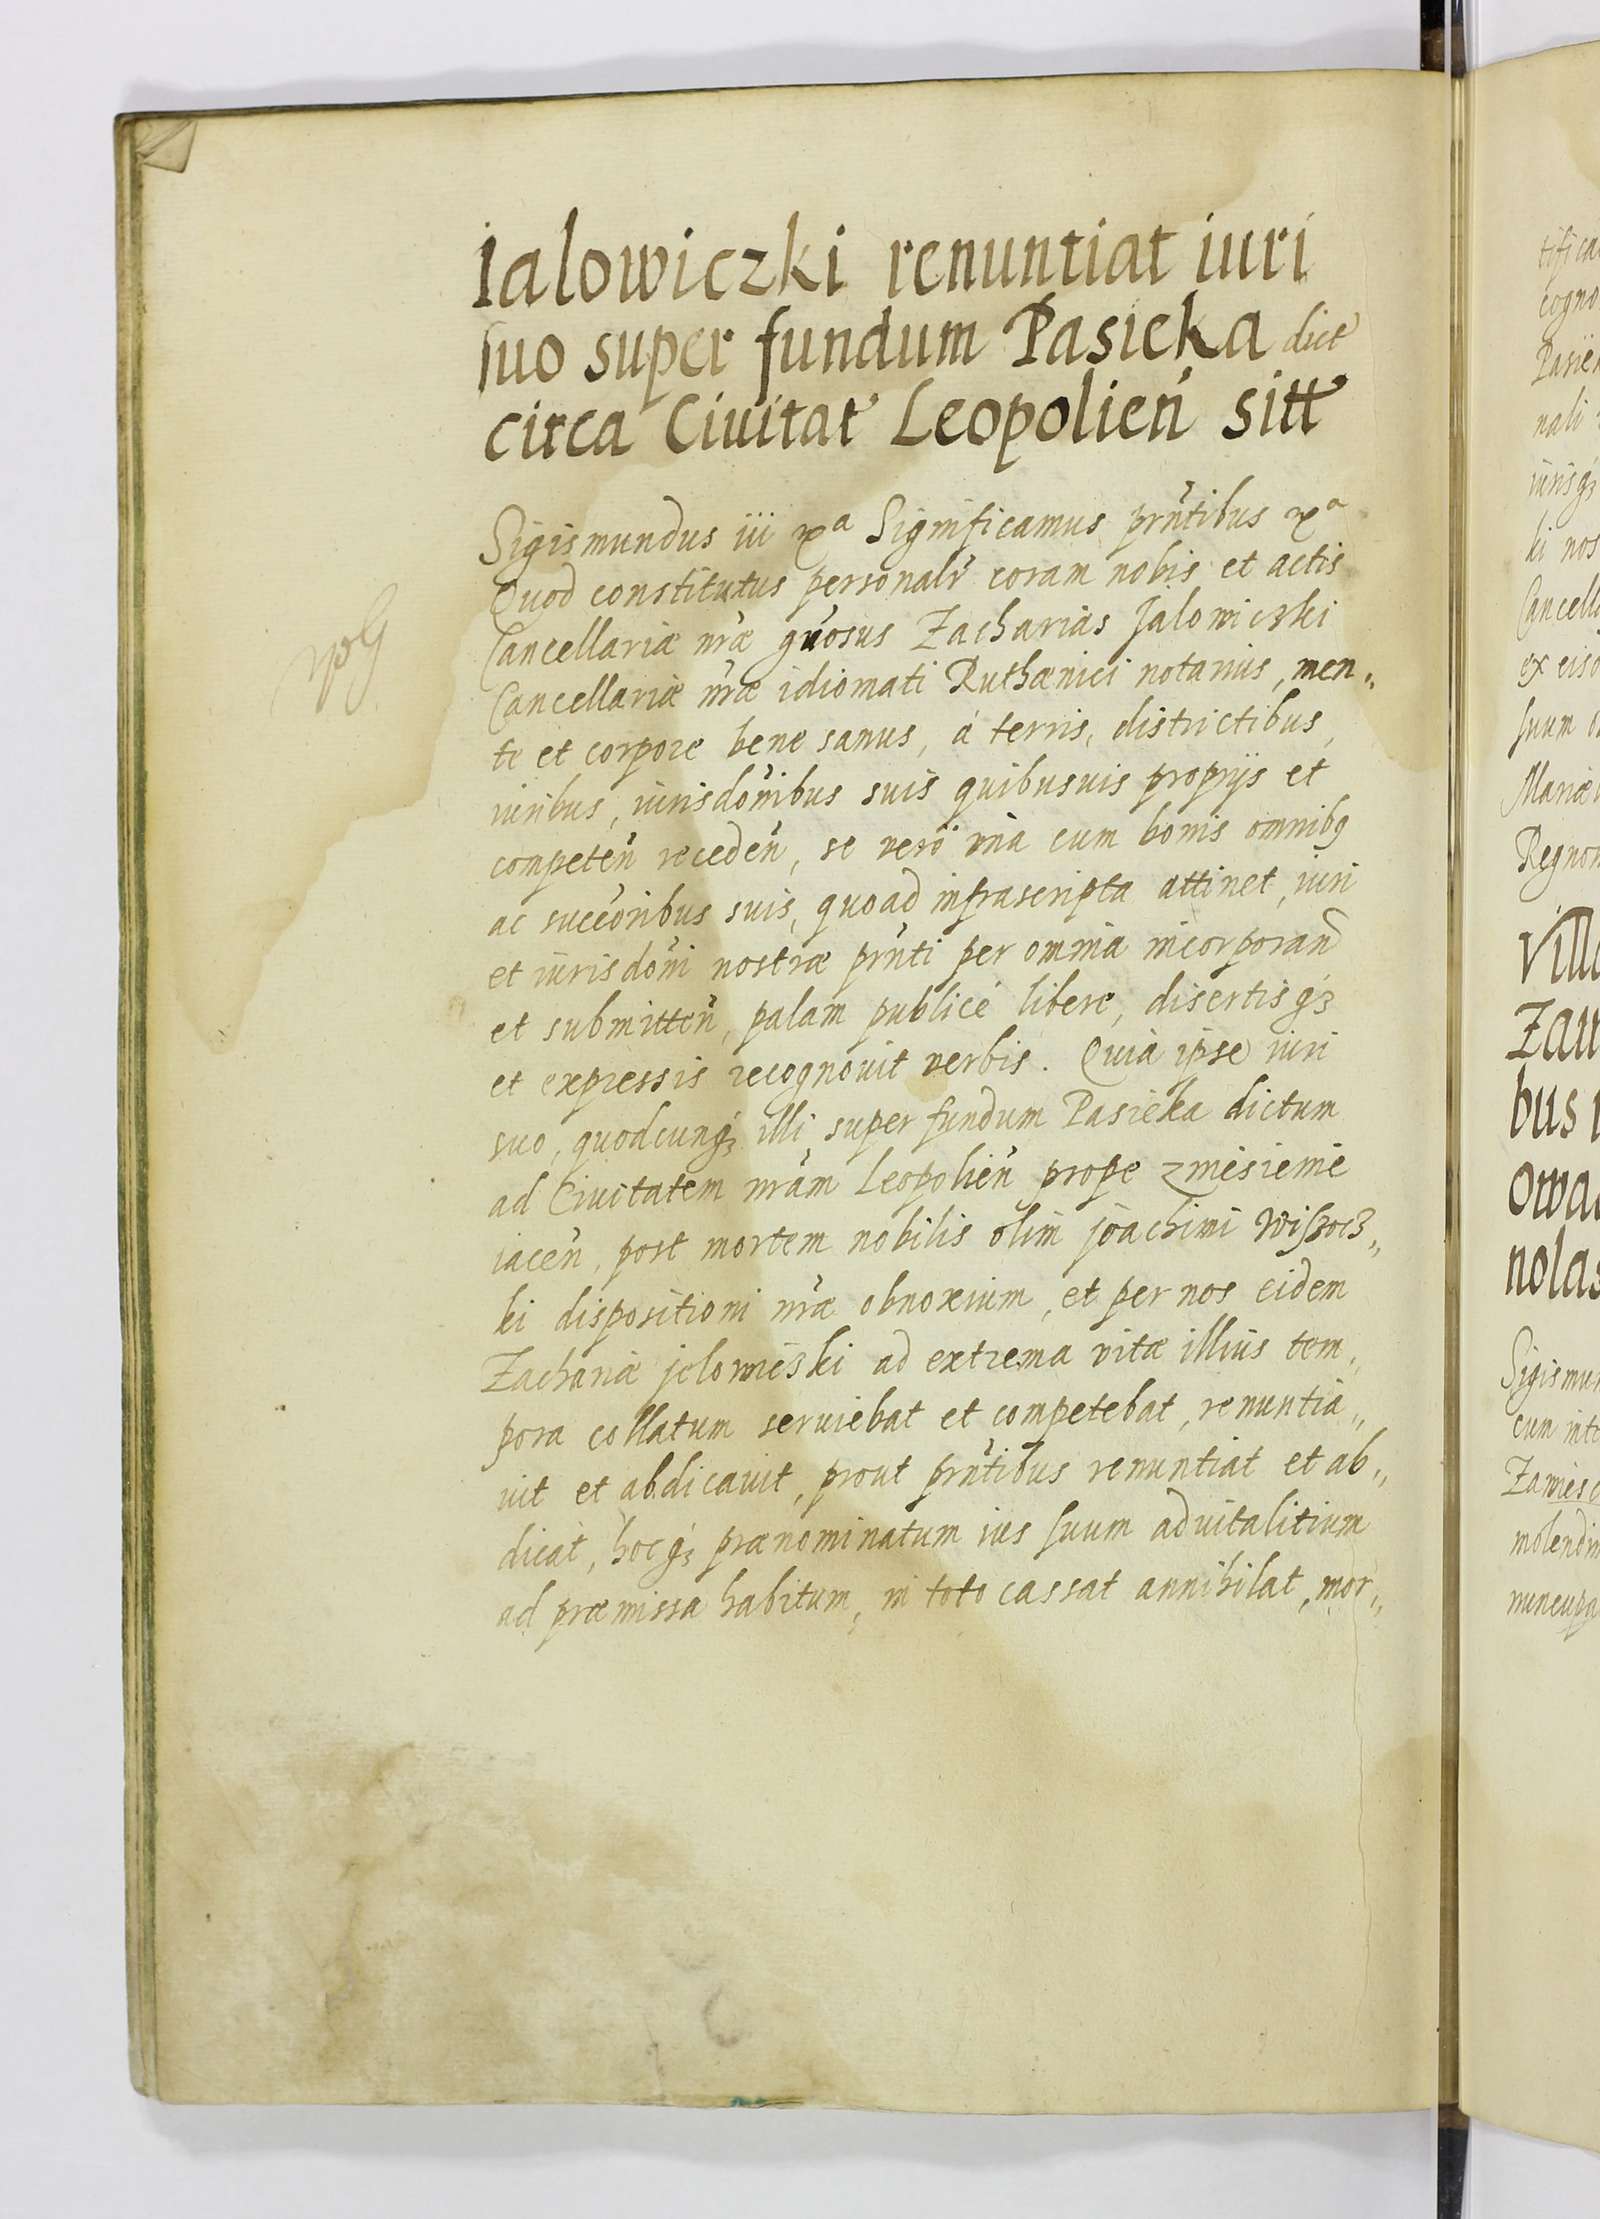 Ialowiczki renuntiat iuri
suo super fundum Pasieka dict
circa Ciuitat Leopolień sitt
Sigismundus iii rxª Significamus prñtibus rxª
Quod constitutus personalr coram nobis et actis
Cancellariæ nræ gnosus Zacharias Jalowiczki
Cancellariæ nræ idiomati Ruthænici notarius, men„
te et corpore bene sanus, á terris, districtibus,
iuribus, iurisdonibus suis quibusuis proprijs et
competeñ recedeñ, se vero vna cum bonis omnibq
ac succoribus suis, quoad infrascripta attinet, iuri
et iurisdoni nostræ prñti per omnia incorporand
et submitteñ, palam publicé libere, disertisq3
et expressis recognouit verbis. Quia ipse iuri
suo, quodcunq3 illi super fundum Pasieka dictum
ad Ciuitatem nram Leopolieñ prope zniesienie
iaceñ, post mortem nobilis olim joachimi Wissocz„
ki dispositioni nræ obnoxium, et per nos eidem
Zachariæ jelowiéski ad extrema vitæ illius tem„
pora collatum seruiebat et competebat, renuntia„
uit et abdicauit, prout prñtibus renuntiat et ab„
dicat, hocq3 prænominatum ius suum aduitalitium
ad præmissa habitum, in toto cassat annihilat, mor„
tifica
cogno
Pasiek
nali
iurisq3
ki nos
Cancella
ex eisd
suum
Mariæ
Regnor
Villa
Zam
bus
owa
nolas
Sigismun
cum inte
Zamiesc
molendin
nuncupa